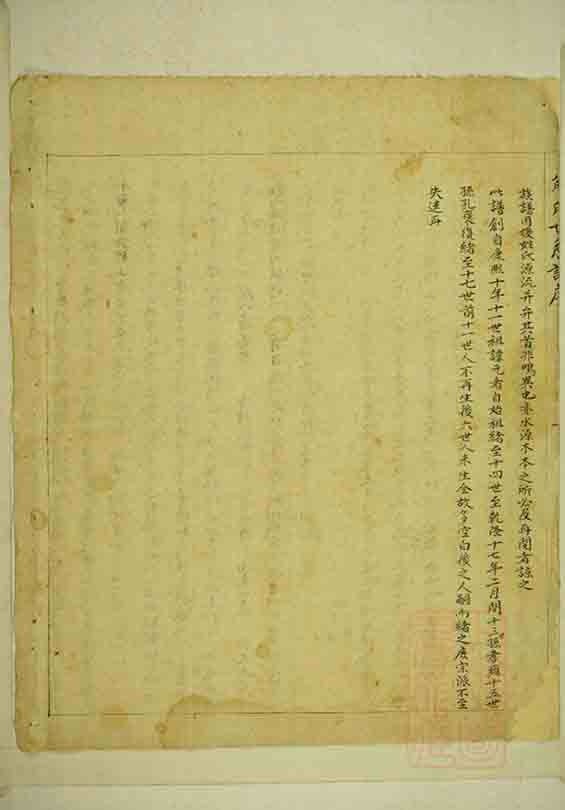 族譜用後姓氏源流弁弁其首非鳴異也亦水源木本之所必及耳閱者諒之
此譜創自康熙十年十一世祖諱元者自始祖緒至十四世至乾隆十七年二月間十三孫孝 十五世
孫孔 復緒至十七世前十一世人不再生後六世人未生全故多空白後之人嗣而緒之庶宗派不至
失迷耳